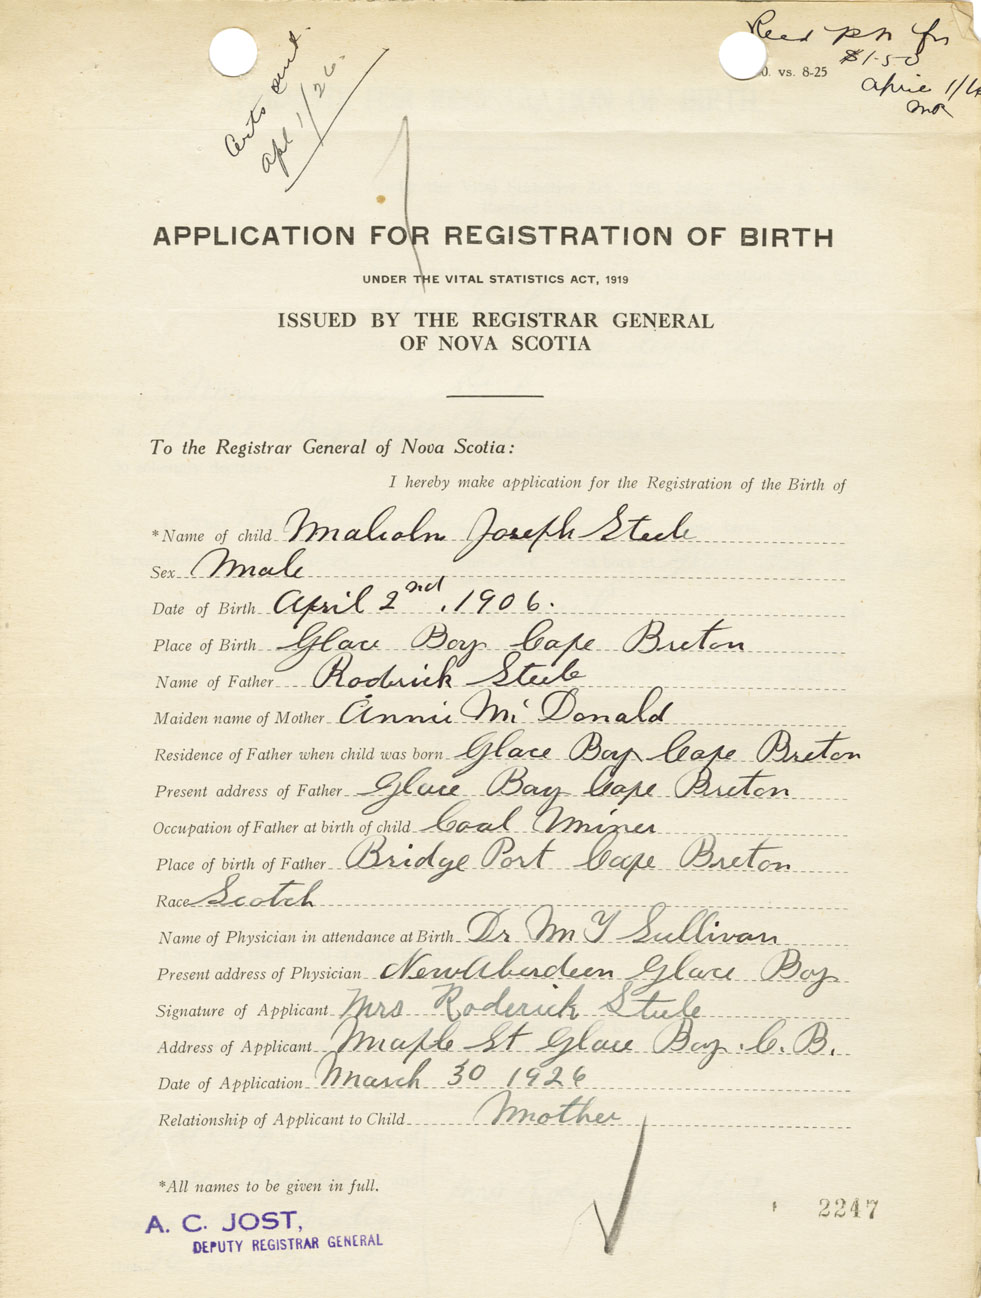 Certs sent
Apl 1/26.
Recd P.N for
$1.50
April 1/
0. vs. 8-25
APPLICATION FOR REGISTRATION OF BIRTH
UNDER THE VITAL STATISTICS ACT, 1919
ISSUED BY THE REGISTRAR GENERAL
OF NOVA SCOTIA
To the Registrar General of Nova Scotia:
I hereby make application for the Registration of the Birth of
*Name of child Malcolm Joseph Steele
Sex Male
Date of Birth April 2nd, 1906.
Place of Birth Glace Bay Cape Breton
Name of Father Roderick Steele
Maiden name of Mother Annie Mc Donald
Residence of Father when child was born Glace Bay Cape Breton
Present address of Father Glace Bay Cape Breton
Occupation of Father at birth of child Coal Miner
Place of birth of Father Bridge Port Cape Breton
Race Scotch
Name of Physician in attendance at Birth Dr M T Sullivan
Present address of Physician New Aberdeen Glace Bay
Signature of Applicant Mrs Roderick Steele
Address of Applicant Maple St Glace Bay. C. B.
Date of Application March 30 1926
Relationship of Applicant to Child Mother
*All names to be given in full.
A. C. JOST,
DEPUTY REGISTRAR GENERAL
2247